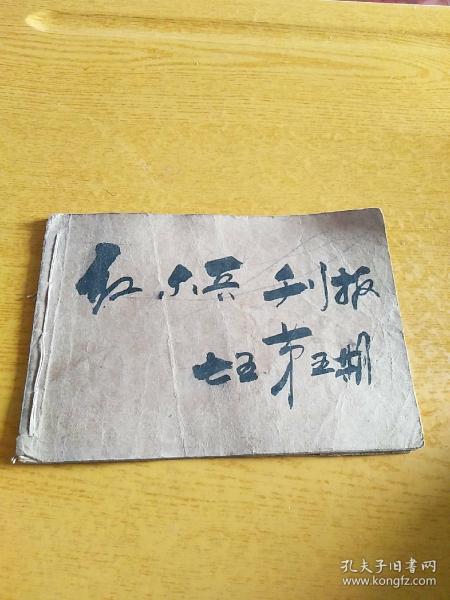 红小兵刊报
七五第五期
孔夫子旧书网
www.kongfz.com